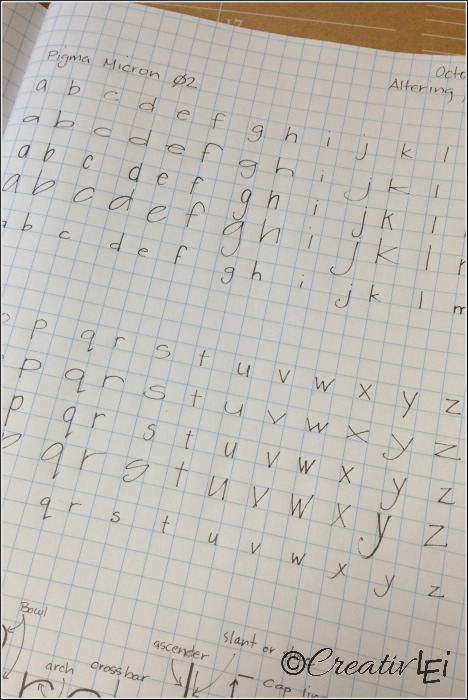 Pigma Micron Ø2
Altering
a b c d e f g h i j k l
a b c d e f g h i j k l
a b c d e f g h i j k l
a b c d e f g h i j k l
b c d e f g h i j k l m
p q r s t u v w x y z
p q r s t u v w x y z
p q r s t u v w x y z
q r s t u v w x y z
q r s t u v w x y z
Bowl
arch crossbar ascender slant or
cap line
©CreativLEi